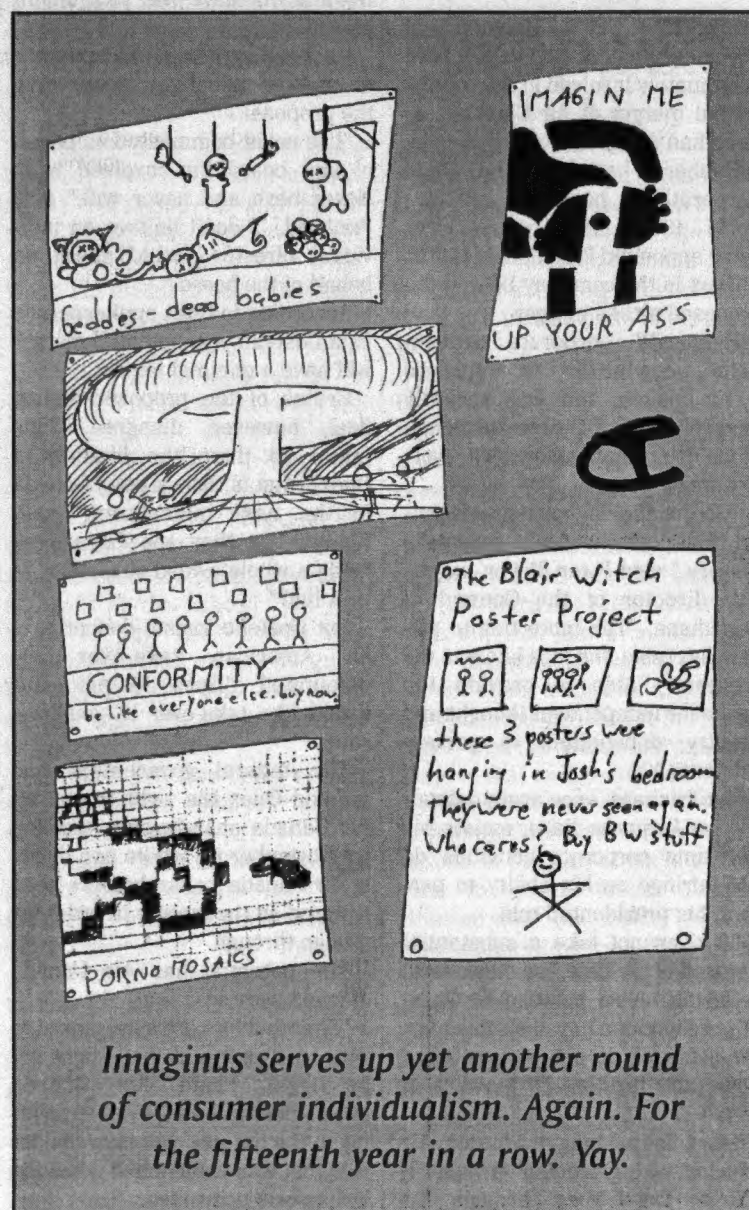 geddes' dead babies
IMAGIN ME
UP YOUR ASS
CONFORMITY
be like everyone else. buy now.
PORNO MOSAICS
The Blair Witch
Poster Project
these 3 posters were
hanging in Josh's bedroom
They were never seen again.
Who cares! Buy BW stuff
Imaginus serves up yet another round
of consumer individualism. Again. For
the fifteenth year in a row. Yay.